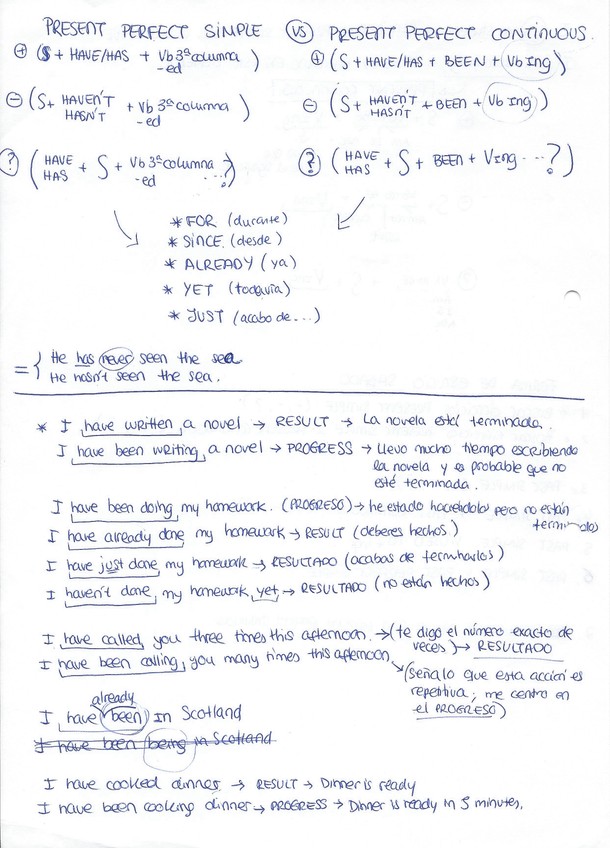 PRESENT PERFECT SIMPLE VS PRESENT PERFECT CONTINUOUS.
+ (S + HAVE/HAS + Vb 3ª columna -ed)
+ (S + HAVE/HAS + BEEN + Vb Ing)
- (S + HAVEN'T HASN'T + Vb 3ª columna -ed)
- (S + HAVEN'T HASN'T + BEEN + Vb Ing)
? (HAVE HAS + S + Vb 3ª columna -ed ...?)
? (HAVE HAS + S + BEEN + Ving ...?)
* FOR (durante)
* SINCE (desde)
* ALREADY (ya)
* YET (todavía)
* JUST (acabo de...)
= { He has never seen the sea.
He hasn't seen the sea.
* I have written a novel → RESULT → La novela está terminada.
I have been writing a novel → PROGRESS → llevo mucho tiempo escribiendo
la novela y es probable que no
esté terminada.
I have been doing my homework. (PROGRESO) → he estado haciéndolos pero no están
terminados
I have already done my homework → RESULT (deberes hechos)
I have just done my homework → RESULTADO (acabas de terminarlos)
I haven't done my homework yet → RESULTADO (no están hechos)
I have called you three times this afternoon. → (te digo el número exacto de
veces) → RESULTADO
I have been calling you many times this afternoon
(Señalo que esta acción es
repetitiva; me centro en
el PROGRESO)
already
I have been in Scotland
I have been being in Scotland
I have cooked dinner. → RESULT → Dinner is ready
I have been cooking dinner → PROGRESS → Dinner is ready in 5 minutes.